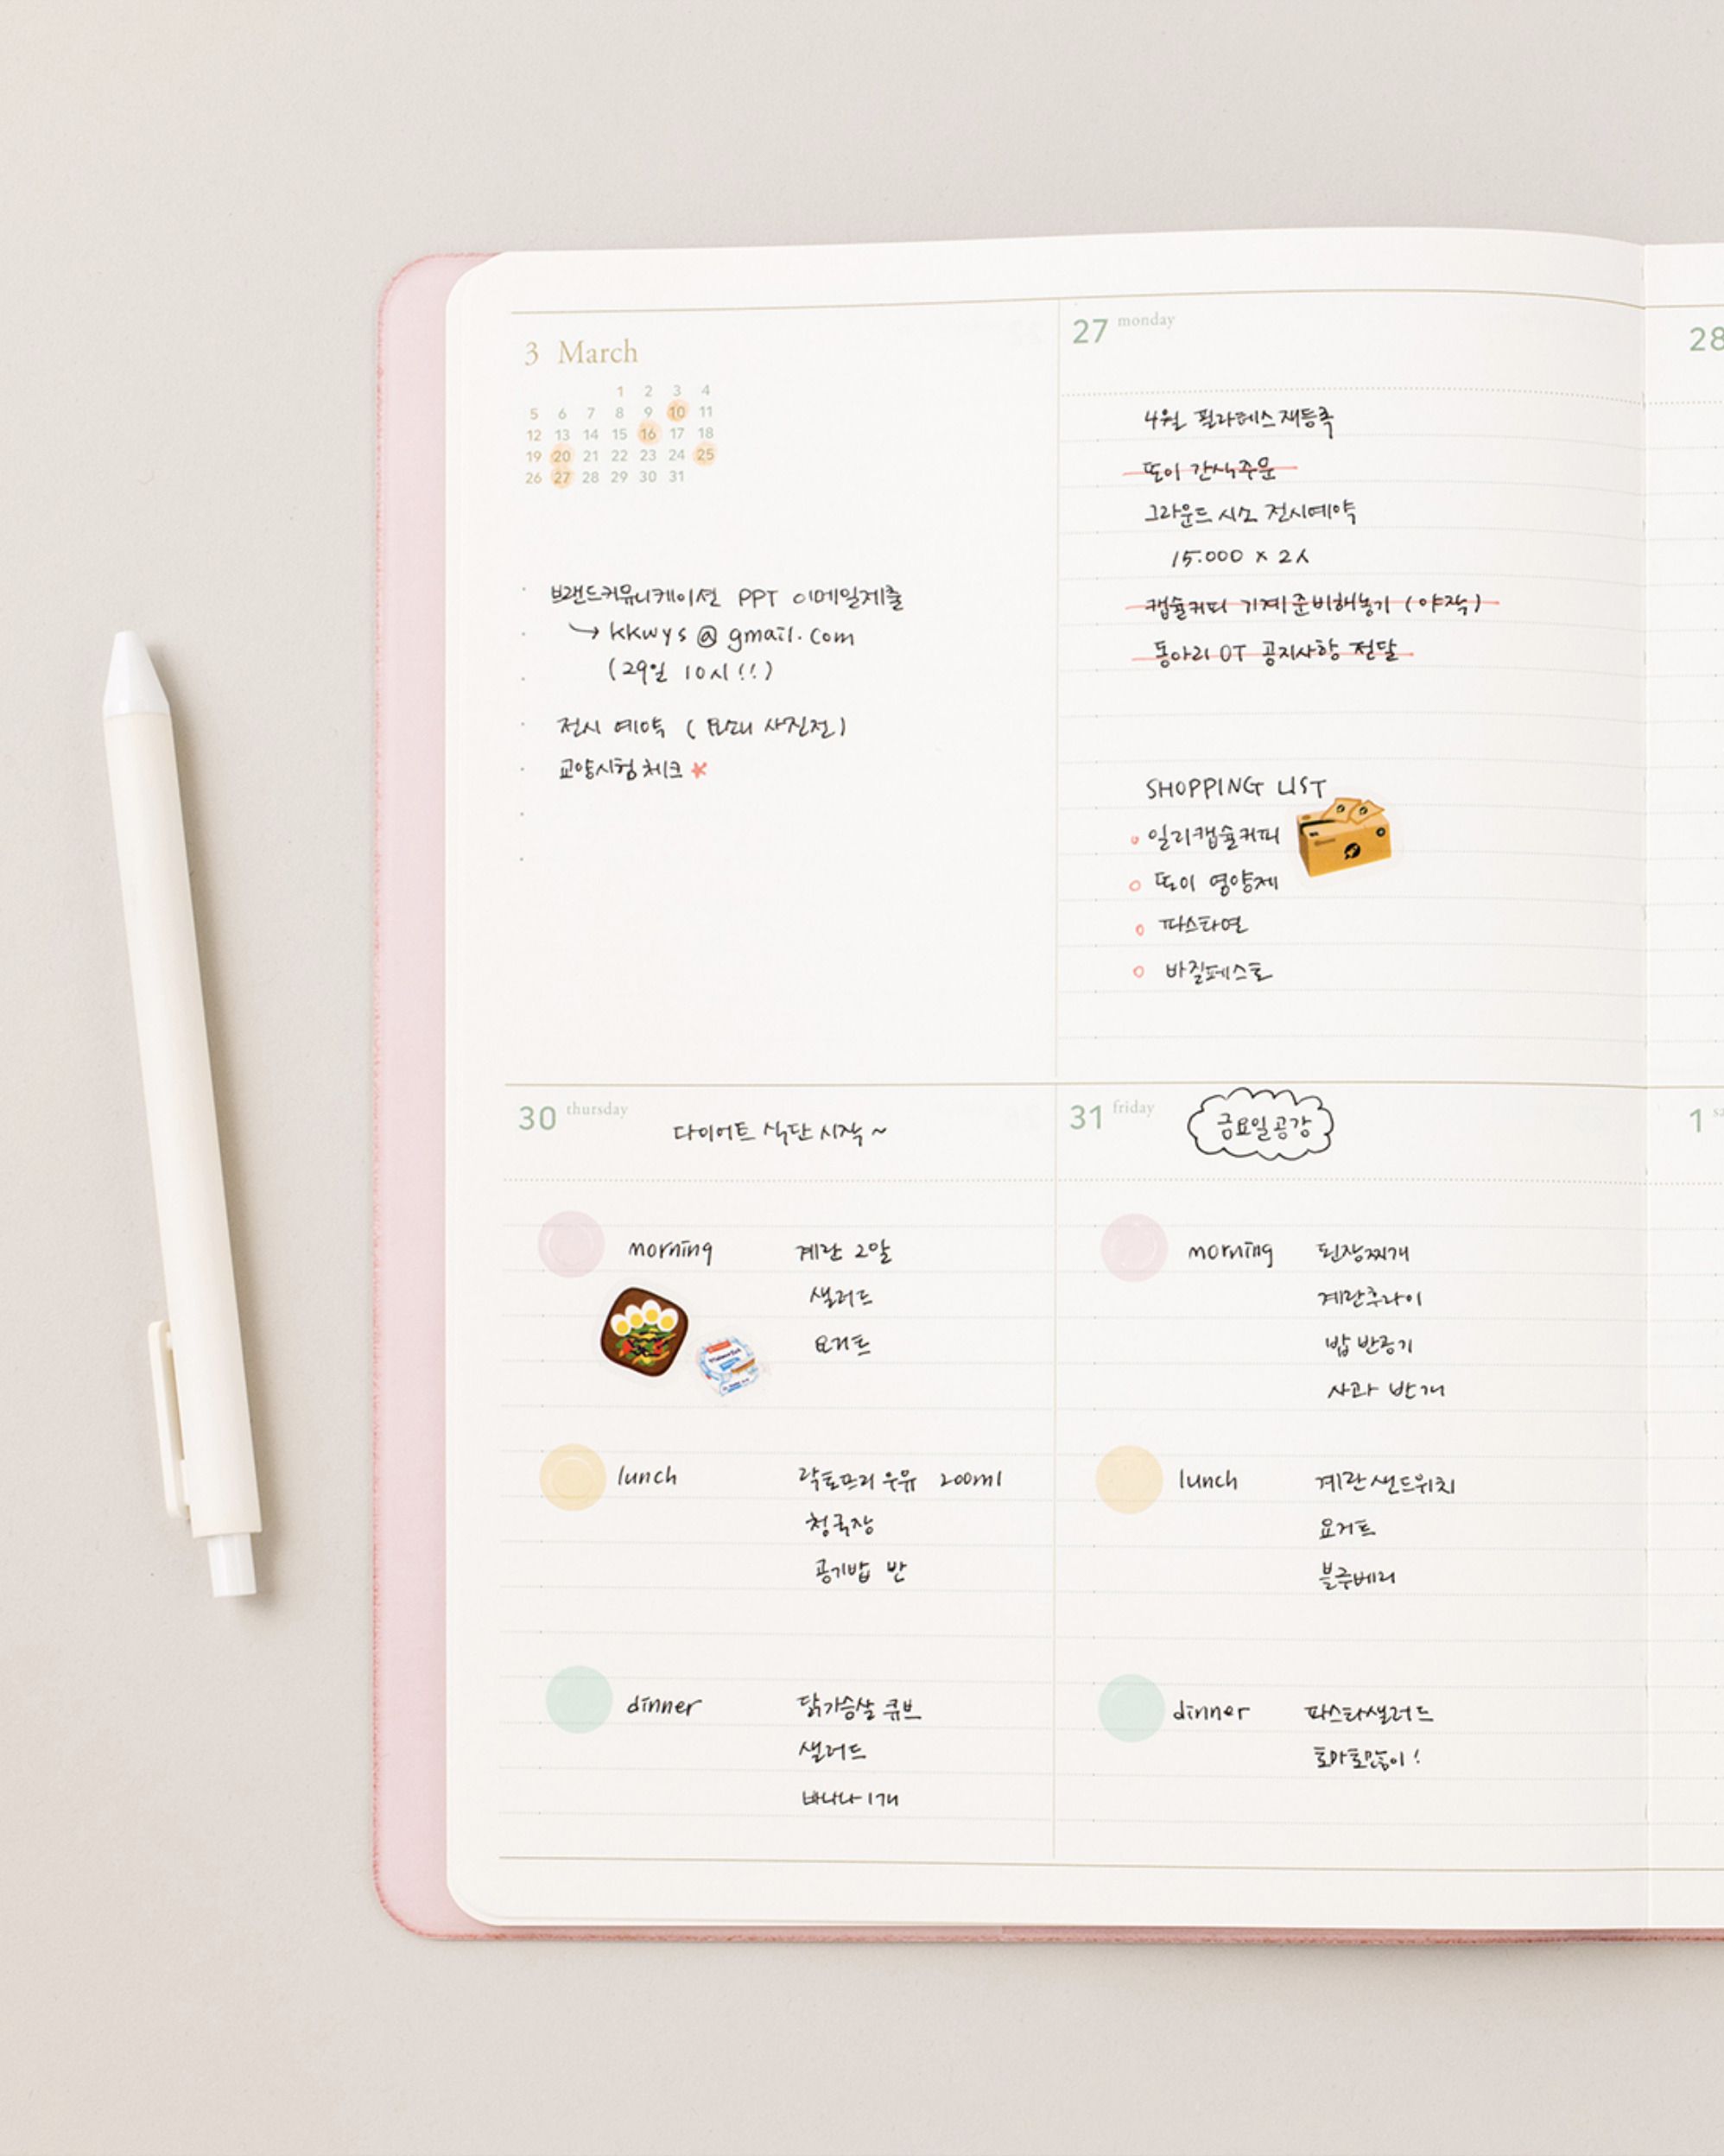 3 March
1 2 3 4
5 6 7 8 9 10 11
12 13 14 15 16 17 18
19 20 21 22 23 24 25
26 27 28 29 30 31
브랜드커뮤니케이션 PPT 이메일제출
→ kkwys @ gmail.com
(29일 10시!!)
전시 예약 ( 사진전)
교양시험 체크
27 monday
4월 필라테스 재등록
또이 간식주문
그라운드 시소 전시예약
15.000 × 2人
캡슐커피 기계 준비해놓기 (야작)
동아리 OT 공지사항 전달
SHOPPING LIST
일리캡슐커피
또이 영양제
파스타면
바질페스토
28
30 thursday
다이어트 식단 시작 ~
morning 계란 2알
샐러드
요거트
lunch 락토프리 우유 200ml
청국장
공기밥 반
dinner 닭가슴살 큐브
샐러드
바나나 1개
31 friday
금요일 공강
morning 된장찌개
계란후라이
밥 반공기
사과 반개
lunch 계란 샌드위치
요거트
블루베리
dinner 파스타샐러드
토마토많이!
1